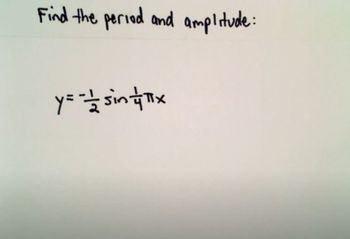 Find the period and amplitude:
y = -1/2 sin 1/4 πx